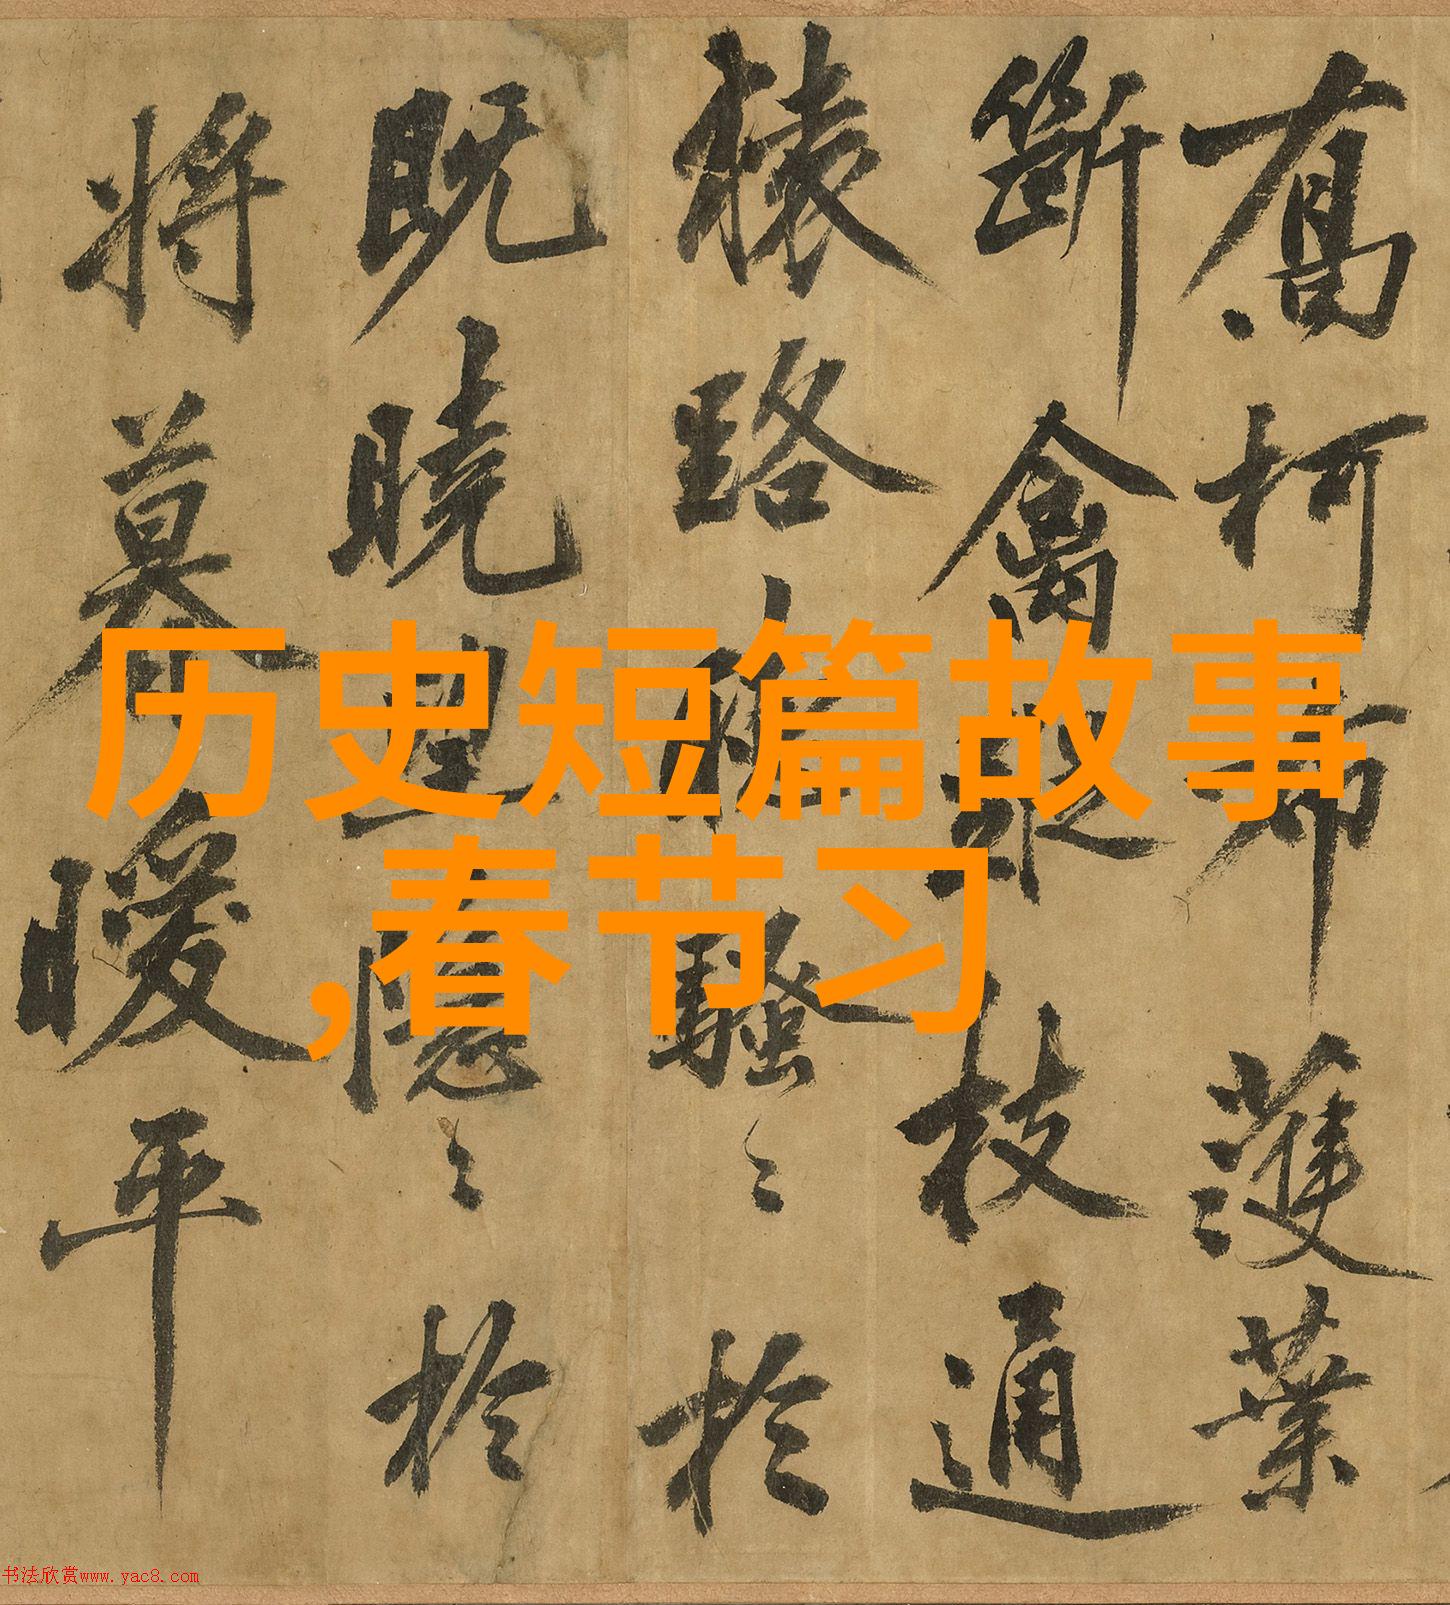 历史短篇故事
,春节习
柯布護葉
斷禽枝通
猿路騷〻於
既曉望隱〻於
將暮曖平
书法欣赏www.yac8.com